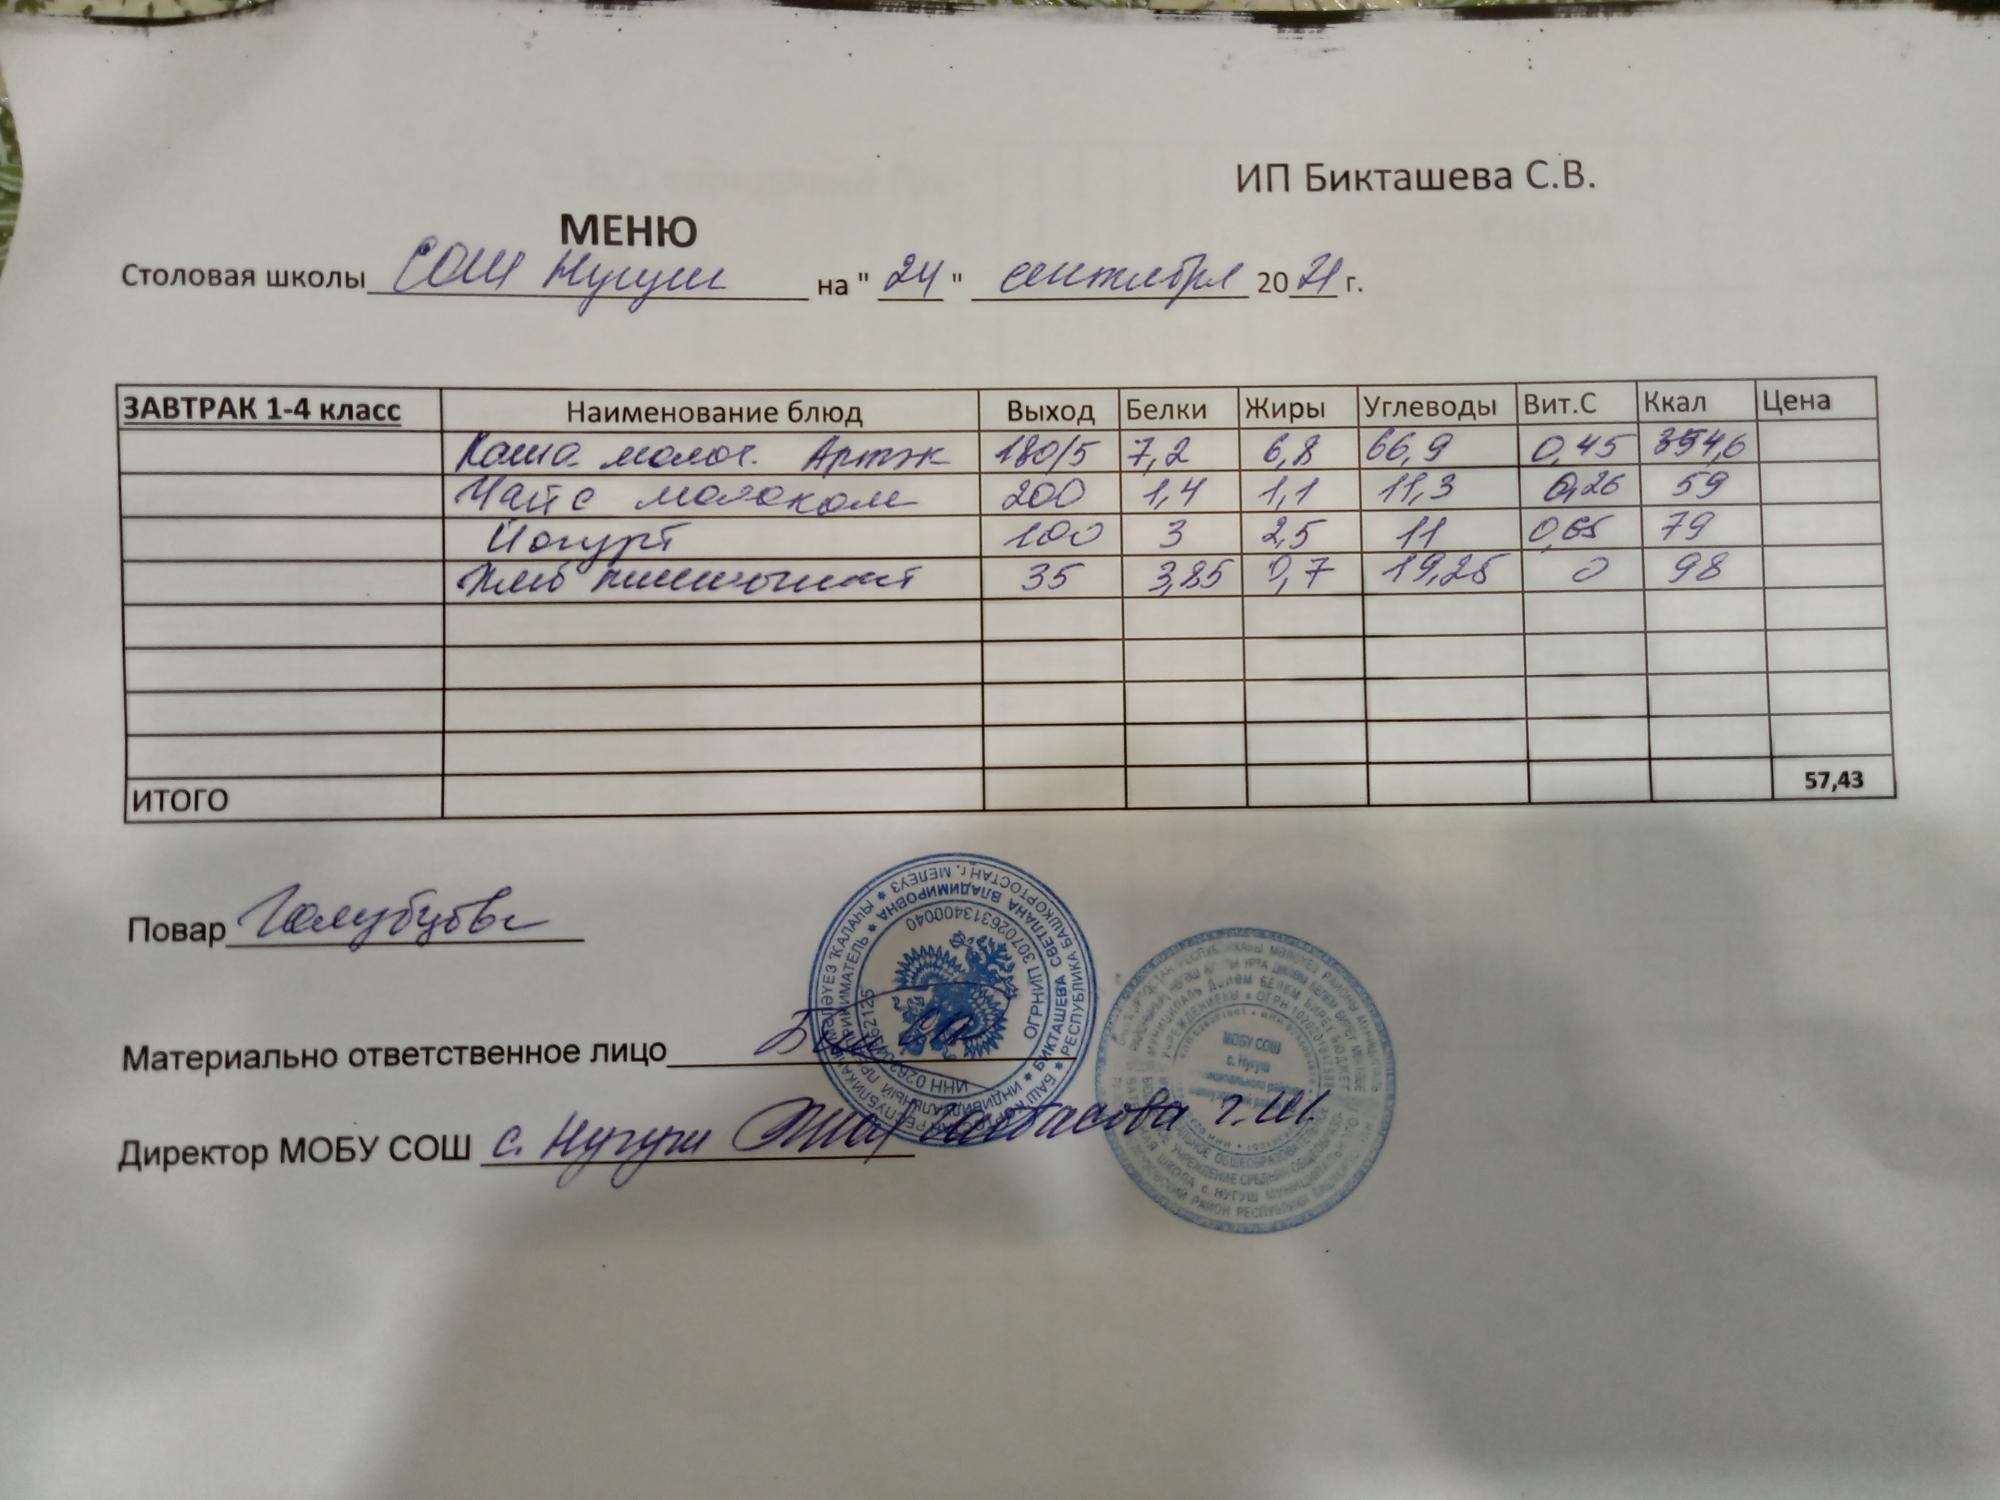 ИП Бикташева С.В.
МЕНЮ
Столовая школы СОШ Нугуш на " 24 " сентября 2021 г.
ЗАВТРАК 1-4 класс Наименование блюд Выход Белки Жиры Углеводы Вит.С Ккал Цена
Каша молоч. Артэк 180/5 7,2 6,8 66,9 0,45 354,6
Чай с молоком 200 1,4 1,1 11,3 0,26 59
Йогурт 100 3 2,5 11 0,65 79
Хлеб пшеничный 35 3,85 0,7 19,25 0 98
ИТОГО 57,43
Повар Голубцова
Материально ответственное лицо
Директор МОБУ СОШ с. Нугуш
БИКТАШЕВА СВЕТЛАНА ВЛАДИМИРОВНА
РЕСПУБЛИКА БАШКОРТОСТАН г. МЕЛЕУЗ
ОГРНИП 307026313400040
МОБУ СОШ
с. Нугуш